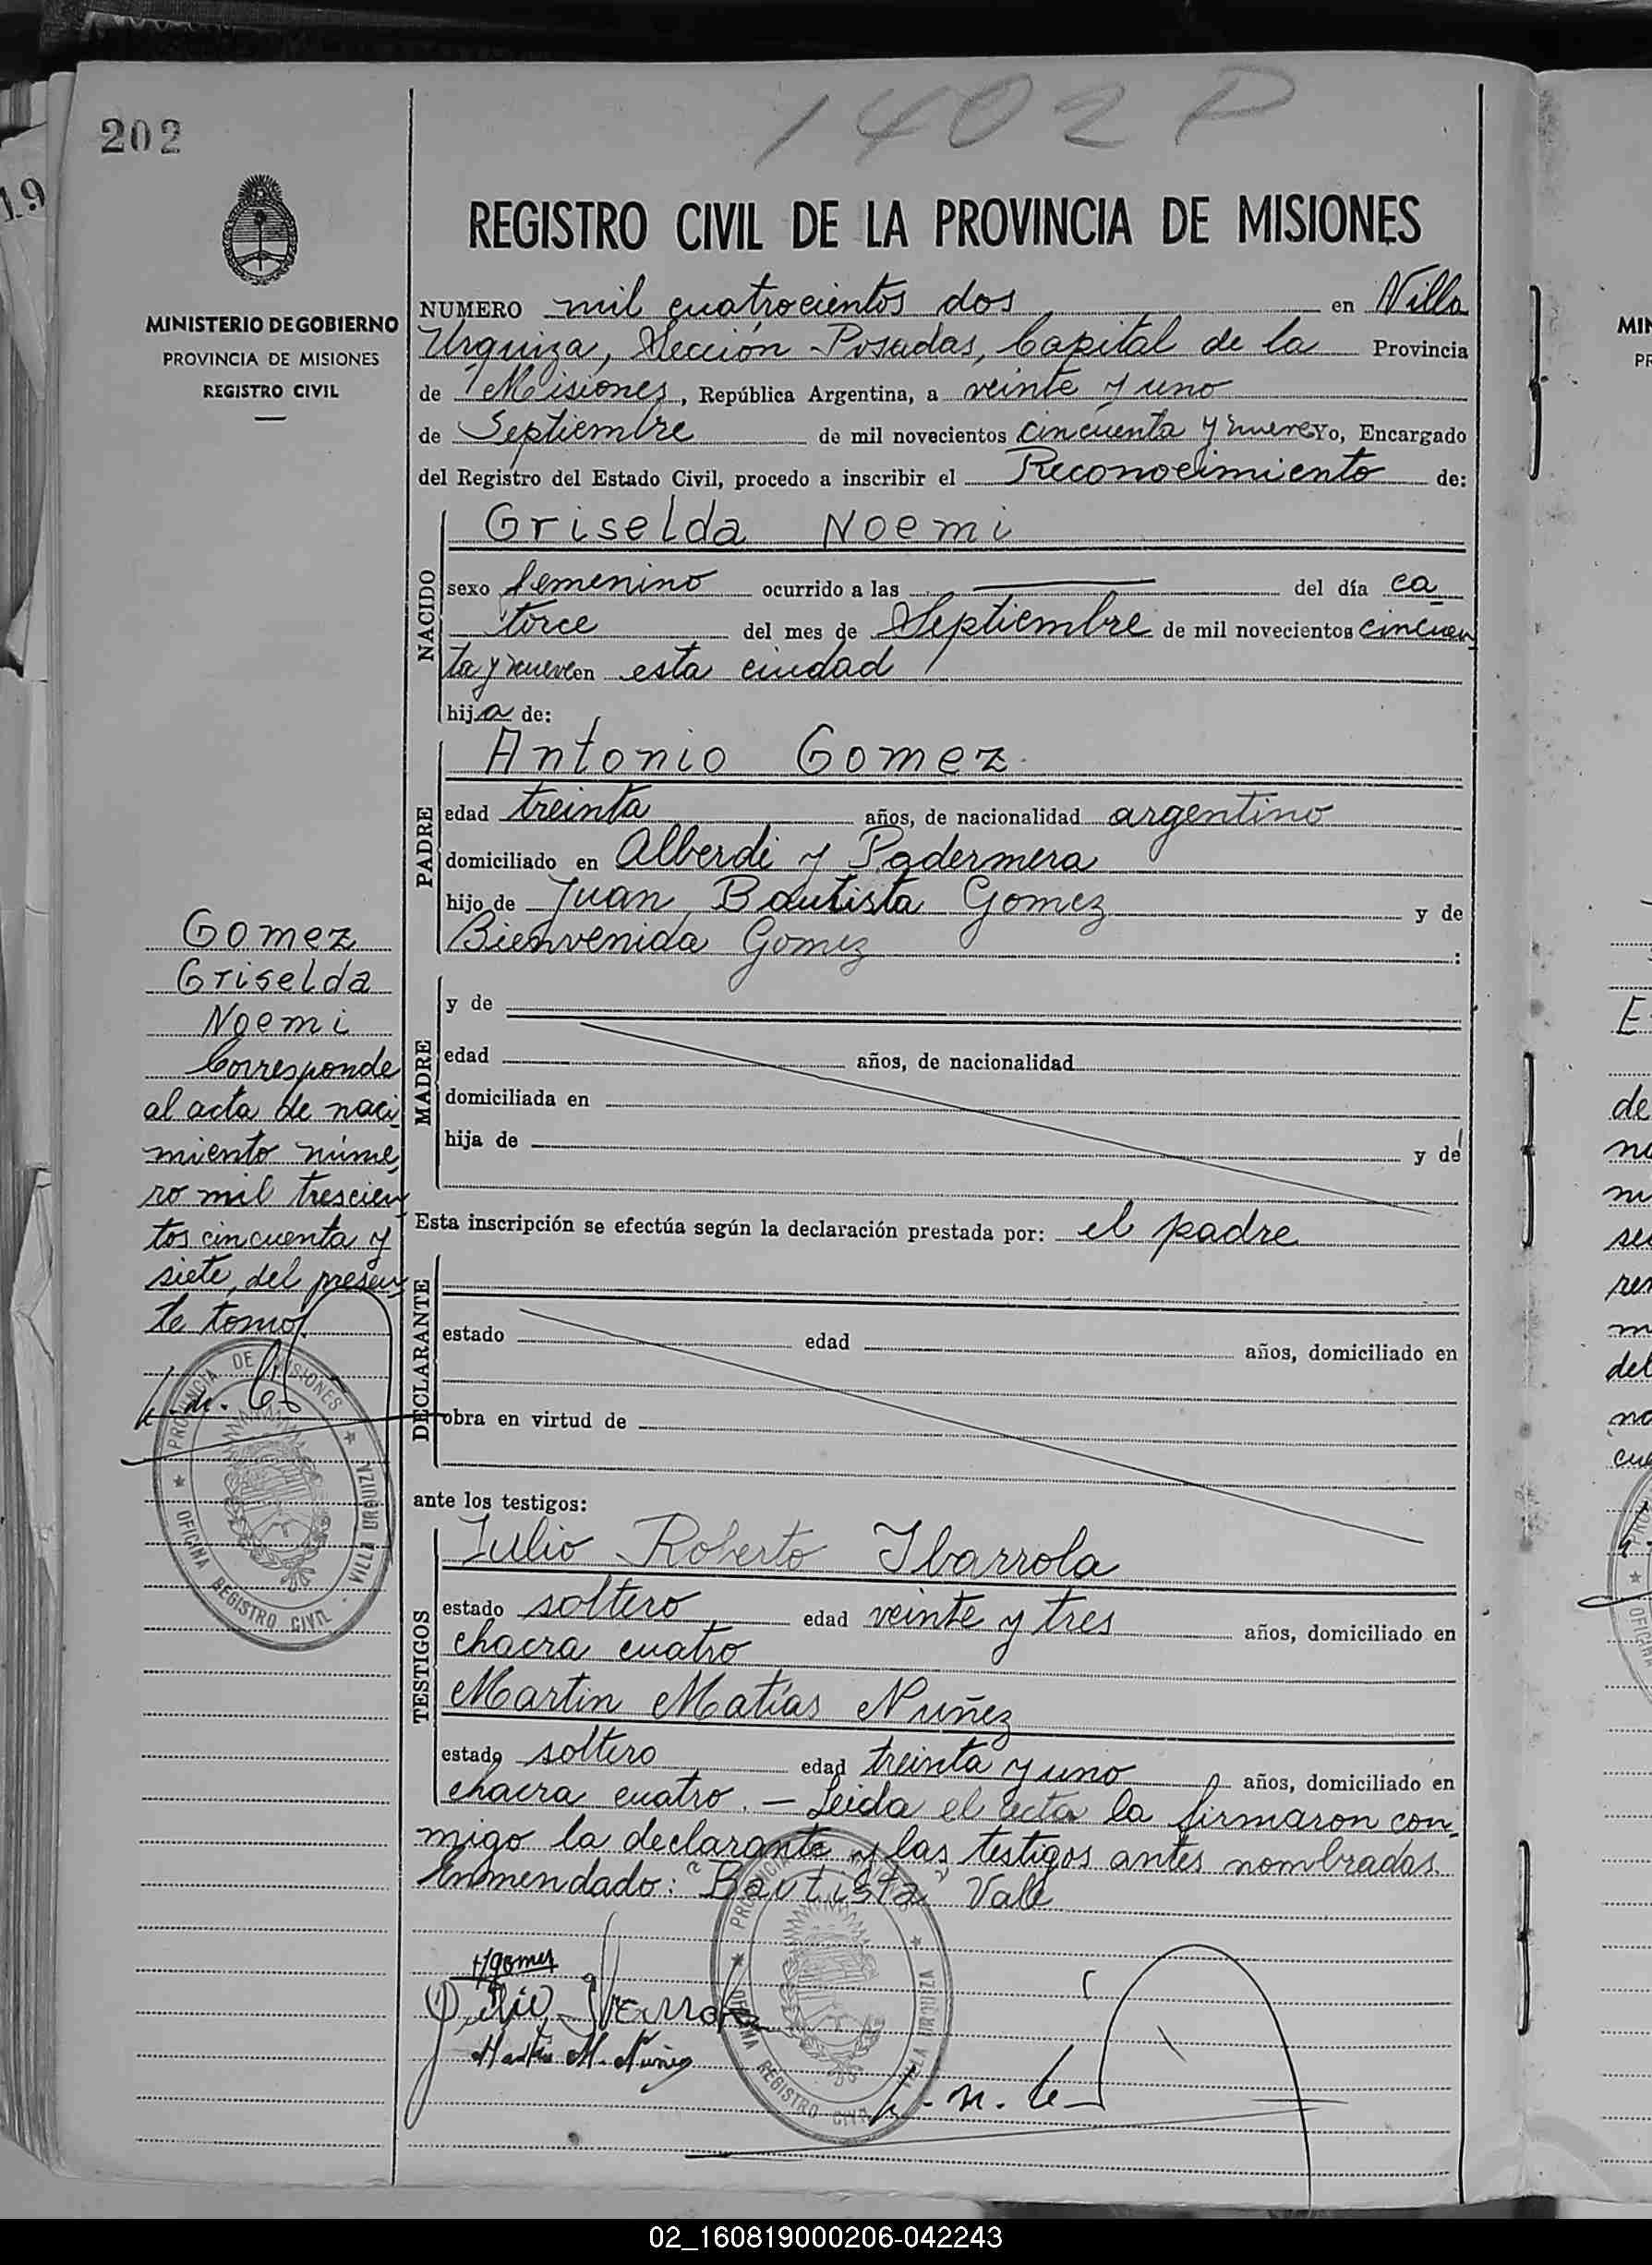 1402 P
202
19
REGISTRO CIVIL DE LA PROVINCIA DE MISIONES
MINISTERIO DE GOBIERNO
PROVINCIA DE MISIONES
REGISTRO CIVIL
NUMERO mil cuatrocientos dos en Villa
Urquiza, Sección Posadas, Capital de la Provincia
de Misiones, República Argentina, a veinte y uno
de Septiembre de mil novecientos cincuenta y nueve Yo, Encargado
del Registro del Estado Civil, procedo a inscribir el Reconocimiento de:
NACIDO
Griselda Noemi
sexo femenino ocurrido a las del día ca
torce del mes de Septiembre de mil novecientos cincuen
ta y nueve en esta ciudad
hija de:
PADRE
Antonio Gomez
edad treinta años, de nacionalidad argentino
domiciliado en Alberdi y Padermera
hijo de Juan Bautista Gomez y de
Bienvenida Gomez :
MADRE
y de
edad años, de nacionalidad
domiciliada en
hija de y de
Esta inscripción se efectúa según la declaración prestada por: el padre
DECLARANTE
estado edad años, domiciliado en
obra en virtud de
ante los testigos:
TESTIGOS
Julio Roberto Ibarrola
estado soltero edad veinte y tres años, domiciliado en
chacra cuatro
Martin Matías Nuñez
estado soltero edad treinta y uno años, domiciliado en
chacra cuatro. — Leida el acta la firmaron con
migo la declarante y las testigos antes nombradas.
Enmendado: "Bautista" Vale
Gomez
Griselda
Noemi
Corresponde
al acta de naci
miento núme
ro mil trescien
tos cincuenta y
siete, del presen
te tomo
PROVINCIA DE MISIONES
OFICINA REGISTRO CIVIL - VILLA URQUIZA
Julio Ibarrola
Martin M. Nuñez
PROVINCIA
OFICINA REGISTRO CIVIL VILLA URQUIZA
02_160819000206-042243